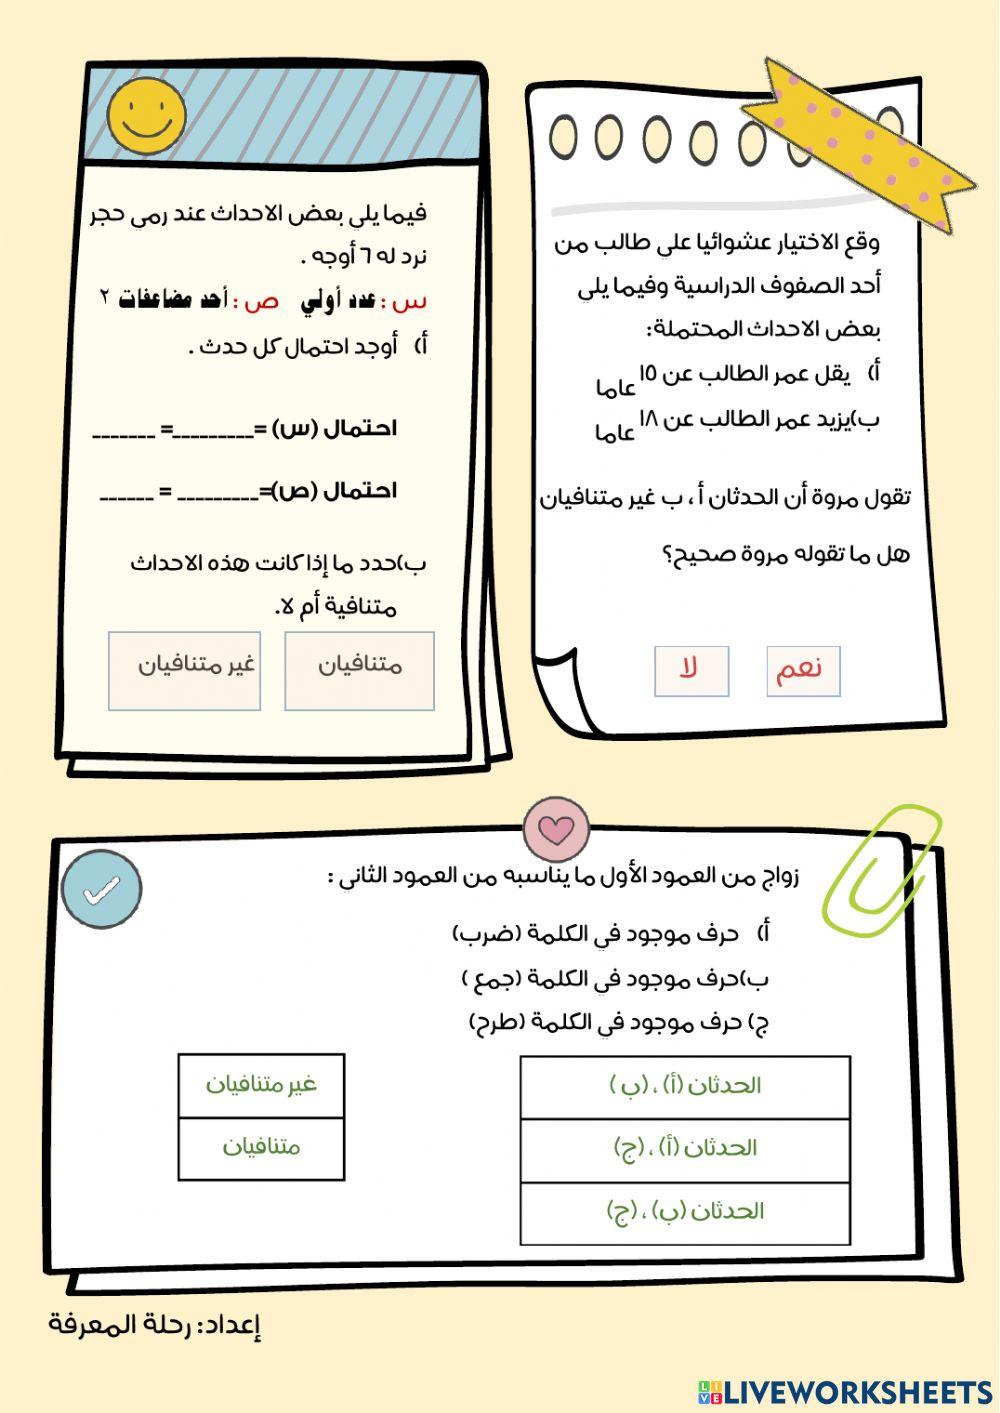 وقع الاختيار عشوائيا علي طالب من
أحد الصفوف الدراسية وفيما يلي
بعض الاحداث المحتملة:
أ) يقل عمر الطالب عن ١٥ عاما
ب)يزيد عمر الطالب عن ١٨ عاما
تقول مروة أن الحدثان أ ، ب غير متنافيان
هل ما تقوله مروة صحيح؟
نعم
لا
فيما يلي بعض الاحداث عند رمي حجر
نرد له ٦ أوجه .
س : عدد أولي ص : أحد مضاعفات ٢
أ) أوجد احتمال كل حدث .
احتمال (س) =_________= _______
احتمال (ص)=_________ = ______
ب)حدد ما إذا كانت هذه الاحداث
متنافية أم لا.
متنافيان
غير متنافيان
زواج من العمود الأول ما يناسبه من العمود الثاني :
أ) حرف موجود في الكلمة (ضرب)
ب)حرف موجود في الكلمة (جمع )
ج) حرف موجود في الكلمة (طرح)
الحدثان (أ) ، (ب )
الحدثان (أ) ، (ج)
الحدثان (ب) ، (ج)
غير متنافيان
متنافيان
إعداد: رحلة المعرفة
LIVE LIVEWORKSHEETS